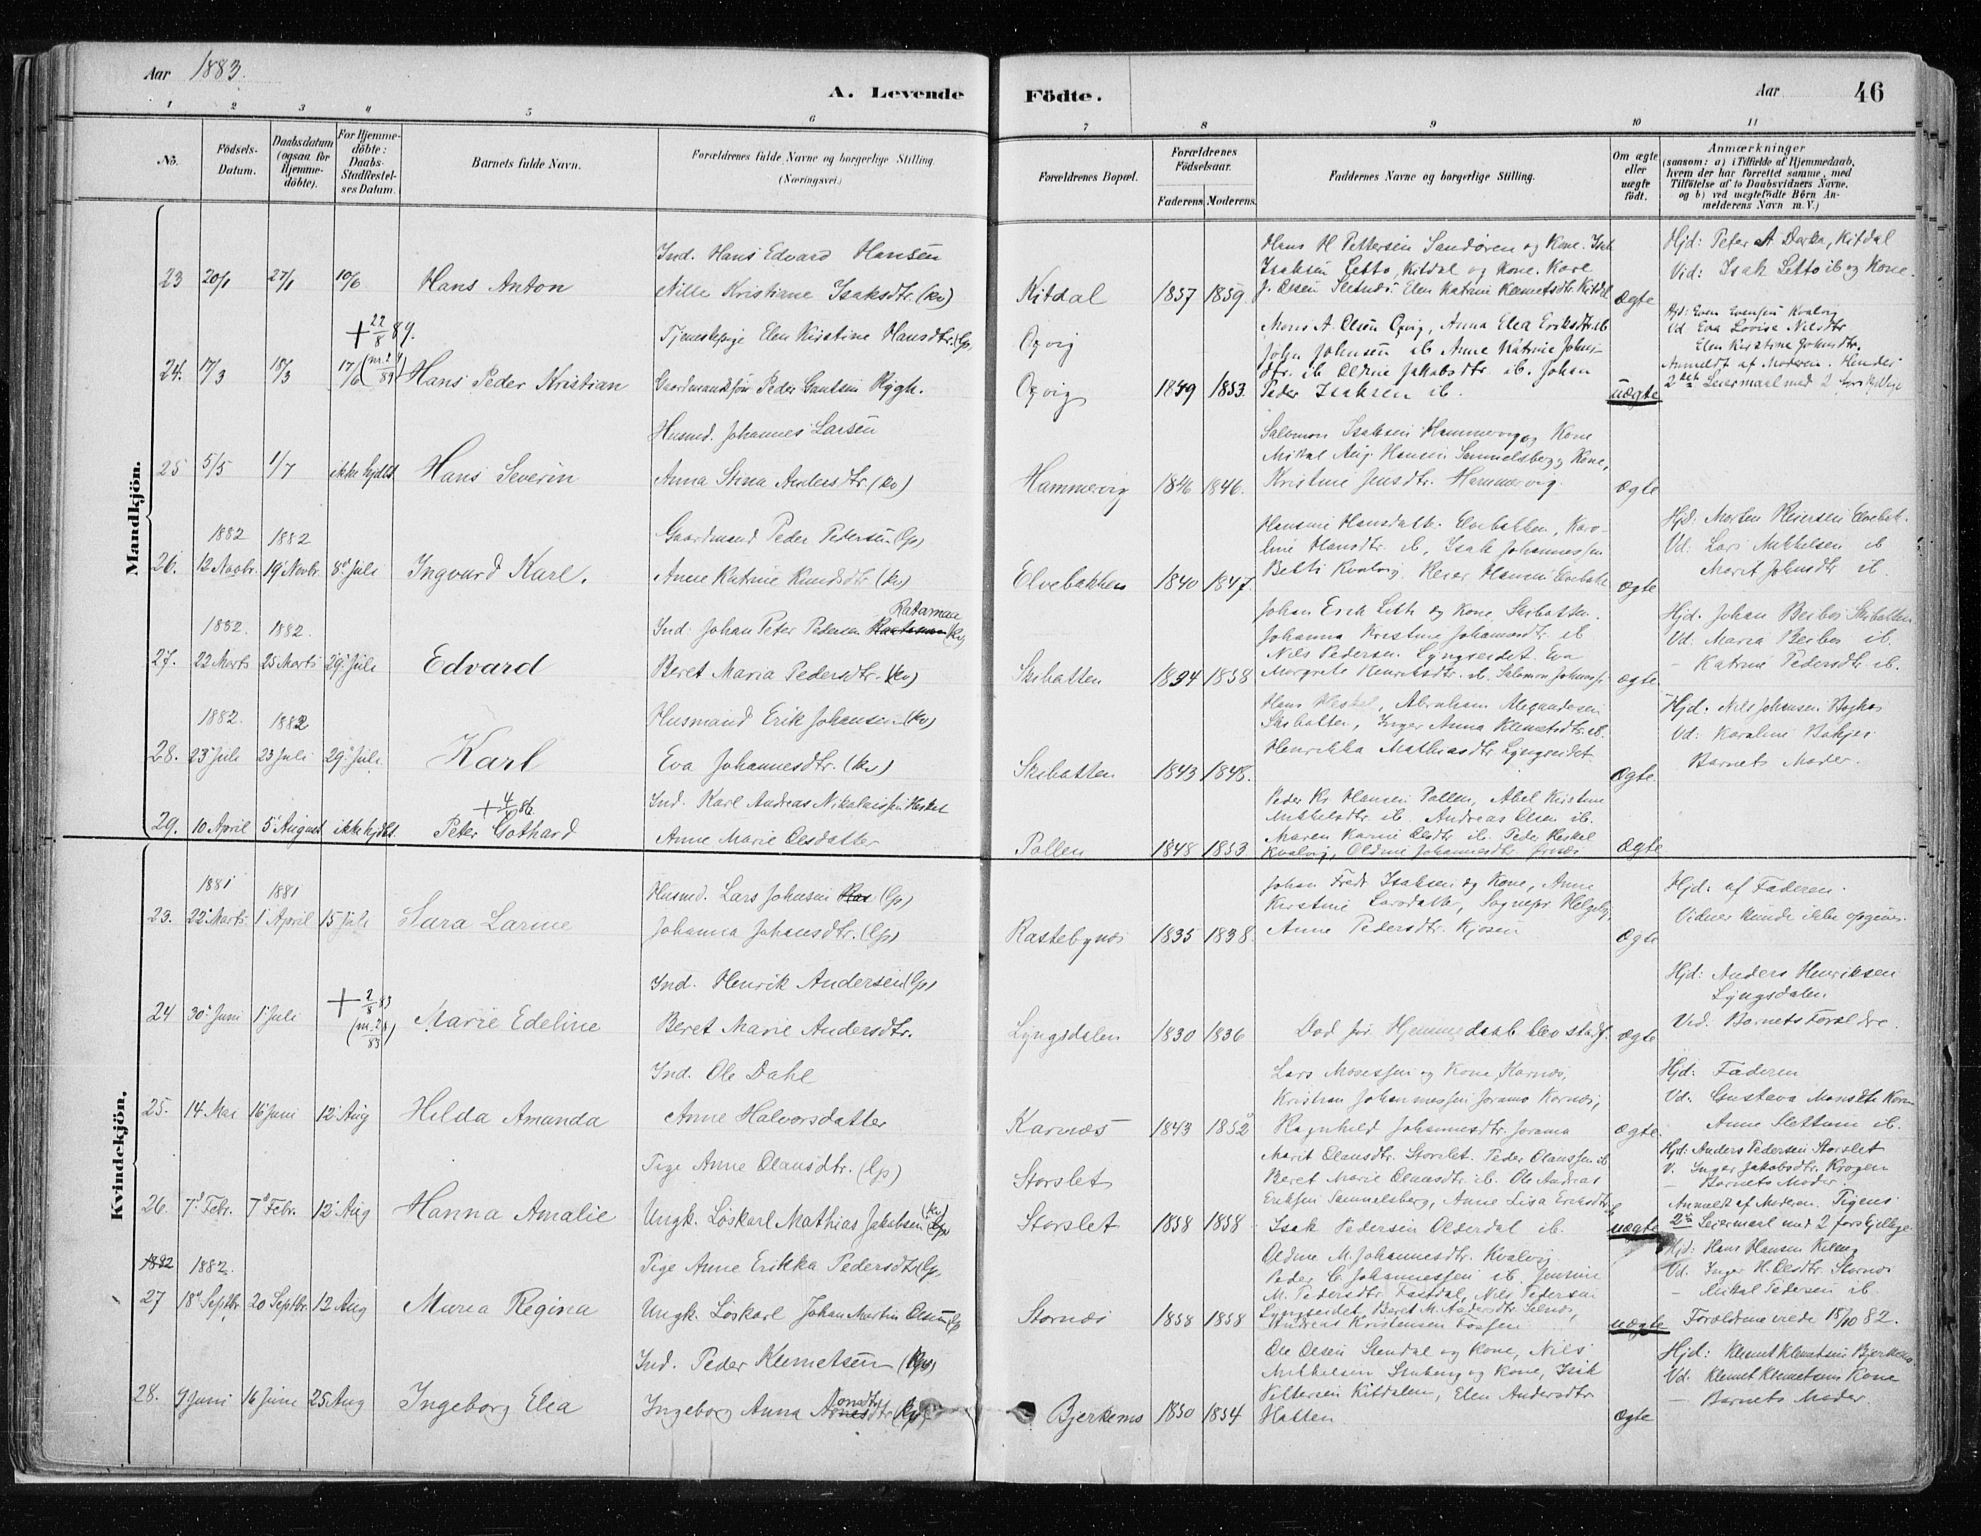 Aar 1883.
A. Levende Födte.
Aar 46
1 2 3 4 5 6 7 8 9 10 11
No.
Födsels-Datum.
Daabsdatum (ogsaa for Hjemme-döbte).
For Hjemme-döbte: Daabs-Stadfæstel-ses Datum.
Barnets fulde Navn.
Forældrenes fulde Navne og borgerlige Stilling. (Næringsvei.)
Forældrenes Bopæl.
Forældrenes Födselsaar.
Faderens Moderens
Faddernes Navne og borgerlige Stilling.
Om ægte eller uægte födt.
Anmærkninger
(saasom: a) i Tilfælde af Hjemmedaab,
hvem der har forrettet samme, med
Tilföielse af to Daabsvidners Navne,
og b) ved uægtefödte Börn An-
melderens Navn m. V.)
Mandkjön.
23 20/1 27/1 10/6 Hans Anton
Ind. Hans Edvard Hansen
Nille Kristine Isaksdtr. (kv)
Kitdal 1857 1859.
Hans H Pettersen Sandøren og Kone. Isak
Isaksen Letto, Kitdal og Kone. Karl
Kitdal
Ægte
Hjd: Peter A Dorka, Kitdal
Vid: Isak Letto ib og Kone.
+ 22/8 89.
24. 17/3 18/3 17/6 Hans Peder Kristian
Tjenestepige Elen Kirstine Hansdtr. (Gp)
Gaardmandssøn Peder Gautsen Rygh.
Oxvig
Oxvig 1849 1853.
Mons A. Olsen Oxvig, Anna Elea Eriksdtr. ib
John Johnsen ib Anne Katrine Johns-
dtr. ib Oldine Jakobsdtr. ib. Johan
Peder Isaksen ib.
uægte
Hjd: Even Evensen Kvalvig
Vd Eva Lovise Nilsdtr
Elen Kirstine Johnsdtr.
Anmeldt af Moderen. Hendes
2det Leiermaal med 2 forskjellige
25 5/5 1/7 ikke hjdbt. Hans Severin
Husmd. Johannes Larsen
Anna Stina Andersdtr. (kv)
Hammervig 1846 1846.
Salomon Isaksen Hammervig og Kone
Mikal Aug. Hansen Sammelsberg og Kone,
Kristine Jensdtr. Hammervig.
Ægte
1882 1882
26. 12 Novbr. 19 Novbr. 8de Juli Ingvard Karl.
Gaardmand Peder Petersen (Gp)
Anne Katrine Knudsdtr. (kv)
Elvebakken 1840 1847.
Hansine Hansdatt. Elvebakken, Karo-
line Hansdtr. ib, Isak Johannessen
Betti Kvalvig. Reier Hansen Elvebak
Ægte
Hjd. Morten Reiersen Elvebak.
Vd: Lars Mikkelsen ib
Marit Johnsdtr ib.
1882 1882.
27. 22 Marts 25 Marts 29de Juli Edvard
Ratamaa
Ind: Johan Peter Pedersen (kv)
Beret Maria Pedersdtr. (kv)
Skibotten 1834 1858
Johan Erik Leth og Kone, Skibotten.
Johanna Kristine Johannsdtr. ib
Nils Pedersen Lyngseidet. Eva
Margrete Henriksdtr. ib. Salomon Johnsen
Ægte
Hjd. Johan Beibos Skibotten
Vd. Maria Beibos ib.
— Katrine Pedersdtr. ib.
1882. 1882
28. 23de Juli 23 Juli 29de Juli. Karl
Husmand Erik Johansen (kv)
Eva Johannesdtr. (kv)
Skibotten 1843 1848.
Skibotten, Inger Anna Klemetsdtr. ib.
Henrikka Mathiasdtr Lyngseidet
Ægte.
Hjd. Nils Johansen
Vd: Karoline
Barnets Moder.
29. 10 April 5te August ikke hjdbt. Peter Gothard
Ind. Karl Andreas Nikolaissen Heskel
Anne Marie Olsdatter
Pollen 1848 1853.
Peder Kr. Hansen Pollen, Abel Kristine
Mikkelsdtr ib. Andreas Olsen ib.
Maren Karine Olsdtr ib. Peder Heskel
Kvalvig, Oldine Johannesdtr.
Ægte
Kvindekjön.
1881 1881
23. 22de Marts 1ste April 15 Juli Sara Larine
Husmd. Lars Johnsen (Gp)
Johanna Johansdtr. (Gp)
Rastebynæs 1835 1838.
Johan Fredr Isaksen og Kone, Anne
Kirstine Larsdatter, Sognepr Helgeby,
Anne Pedersdtr. Kjosen
Ægte
Hjd: af Faderen.
Vidner kunde ikke opgives.
24 30te Juni 1ste Juli + 2/8 83 Marie Edeline
Ind. Henrik Andersen (Gp)
Beret Marie Andersdtr.
Lyngsdalen 1830 1836
Død før Hjemmedaab blev stadf.
Ægte
Hjd: Anders Henriksen
Lyngsdalen
Vid. Barnets Forældre.
25. 14 Mai 16 Juni 12te Aug Hilda Amanda
Ind. Ole Dahl
Anne Halvorsdatter
Karnæs 1843 1852
Lars Monsessen og Kone, Karnæs,
Kristian Johannessen Jorama Kornæs,
Ragnhild Johannesdtr. Jorama
Ægte.
Hjd: Faderen
Vd: Gustava Monsdtr Korn
Anne Slettum ib.
26. 7de Febr. 7de Febr. 12te Aug Hanna Amalie
Pige Anne Olausdtr. (Gp)
Ungk. Løskarl Mathias Jakobsen (kv)
Storslet
Storslet 1858 1858
Marit Olausdtr. Storslet. Peder Olaussen ib
Beret Marie Olausdtr. ib. Ole Andreas
Eriksen Sammelsberg, Anne Lisa Eriksdtr ib
Isak Pedersen Olderdal ib.
uægte
Hjd: Anders Pedersen Storslet
V. Inger Jakobsdtr. Krogen
— Barnets Moder.
Anmeldt af Moderen. Pigens
2det Leiermaal med 2 forskjellige
1882 1882.
27 18de Septbr. 20 Septbr. 12 Aug Maria Regina
Pige Anne Erikka Pedersdtr (Gp.
Ungk. Løskarl Johan Martin Olsen (Gp
Stornæs 1858 1858
Oldine M. Johannesdtr. Kvalvig
Peder C. Johannessen ib. Jensine
M. Pedersdtr. Fastdal, Nils Pedersen
Lyngseidet, Beret M. Andersdtr. Selnæs,
Andreas Kristensen Fossen
uægte
Hjd: Hans Hansen Kileng
Vd. Inger H. Olsdtr. Stornæs
— Mikal Pedersen ib.
Forældrene viede 15/10 82.
28. 9 Juni 16 Juni 25 Aug Ingeborg Elea
Ind. Peder Klemetsen (kv)
Ingeborg Anna
Bjerkemo 1850 1854
Ole Olsen Stendal og Kone, Nils
Mikkelsen Stuberg og Kone, Isak
Pettersen Kitdalen, Elen Andersdtr
Hatten
Ægte
Hjd: Klemet Klemetsen Bjerkemo.
Vd: Klemet Klemetsens Kone
— Barnets Moder.